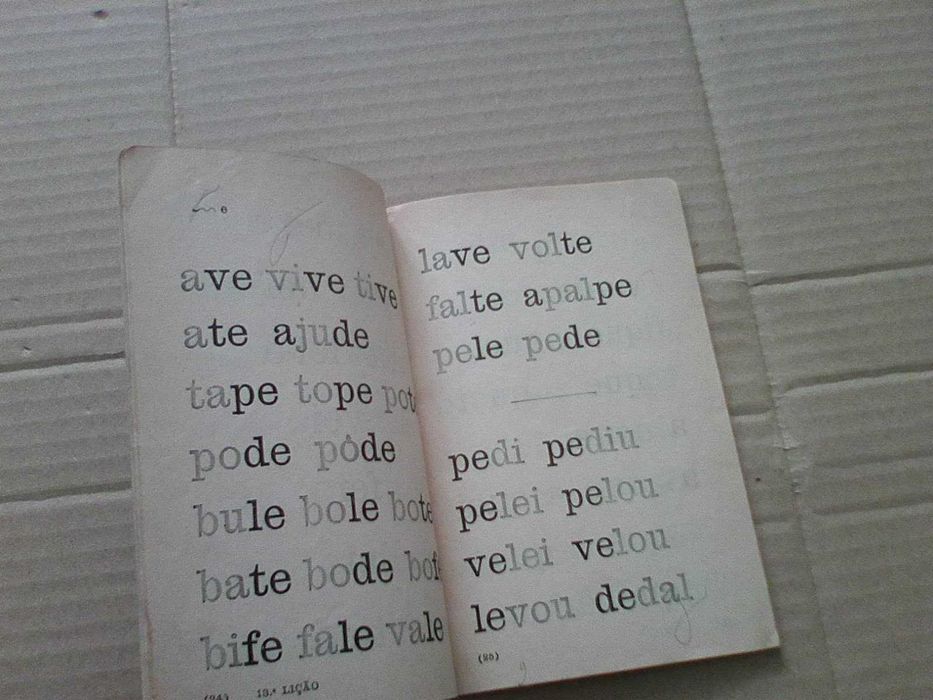 e
ave vive tive
ate ajude
tape tope
pode póde
bule bole bote
bate bode
bife fale vale
(24) 13.ª LIÇÃO
lave volte
falte apalpe
pele pede
pedi pediu
pelei pelou
velei velou
levou dedal
(25)